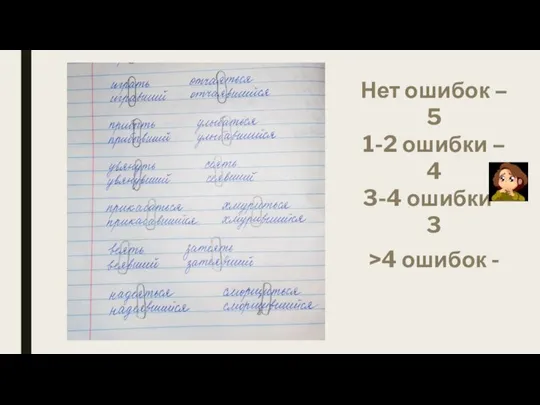 играть отчаяться
игравший отчаявшийся
прибыть улыбаться
прибывший улыбавшийся
увянуть сеять
увянувший сеявший
прикасаться хмуриться
прикасавшийся хмурившийся
веять затеять
веявший затеявший
надеяться сморщиться
надеявшийся сморщившийся
Нет ошибок –
5
1-2 ошибки –
4
3-4 ошибки
3
>4 ошибок -